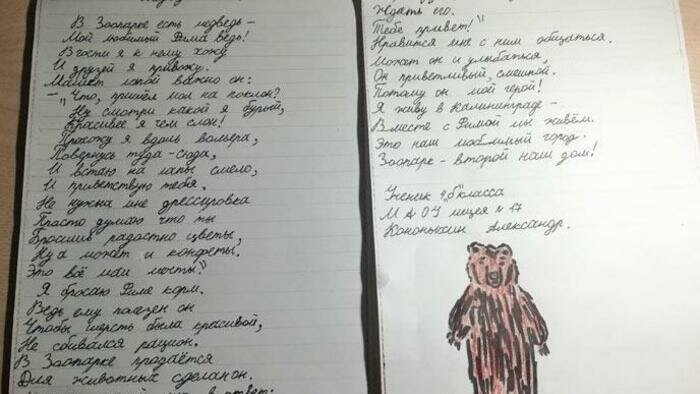 В Зоопарке есть медведь –
Мой любимый Фима ведь!
В гости я к нему хожу
И друзей я привожу.
Машет лапой важно он:
– "Что, пришёл мол на поклон?
Ну смотри какой я бурый,
Красивее я чем слон!
Прохожу я вдоль вольера,
Повернусь туда-сюда,
И встаю на лапы смело,
И приветствую тебя.
Не нужна мне дрессировка
Просто думаю что ты
Бросишь радостно цветы,
Ну а может и конфеты.
Это всё мои мечты!"
Я бросаю Фиме корм.
Ведь ему полезен он
Чтобы шерсть была красивой,
Не сбивался рацион.
В Зоопарке продаётся
Для животных сделан он.
в ответ:
Ждать его.
Тебе привет!"
Нравится мне с ним общаться.
Может он и улыбаться,
Он приветливый, смешной.
Потому он мой герой!
Я живу в Калининграде –
Вместе с Фимой мы живём.
Это наш любимый город.
Зоопарк – второй наш дом!
Ученик "Б" класса
МАОУ лицея № 17
Кононыхин Александр.